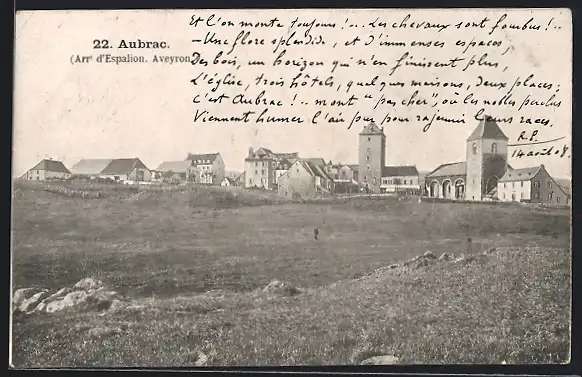 22. Aubrac.
(Arrt d'Espalion. Aveyron)
Et l'on monte toujours !... Les chevaux sont fourbus !...
- Une flore splendide, et d'immenses espaces,
Des bois, un horizon qui n'en finissent plus,
L'église, trois hôtels, quelques maisons, deux places ;
C'est Aubrac !.. mont "pas cher", où les nobles perclus
Viennent humer l'air pur pour rajeunir leurs races.
R.P.
14 août 08.